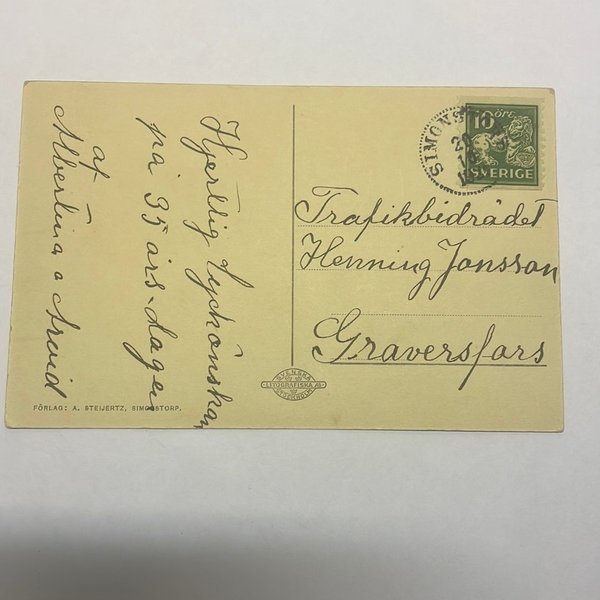 Hjertlig Lyckönskan
på 35 års-dagen
af
Albertina o Arvid
FÖRLAG: A. STEIJERTZ, SIMONSTORP.
SVENSKA
LITOGRAFISKA AB
STOCKHOLM
SIMONS
10 ÖRE
SVERIGE
Trafikbidrädet
Henning Jonsson
Graversfors